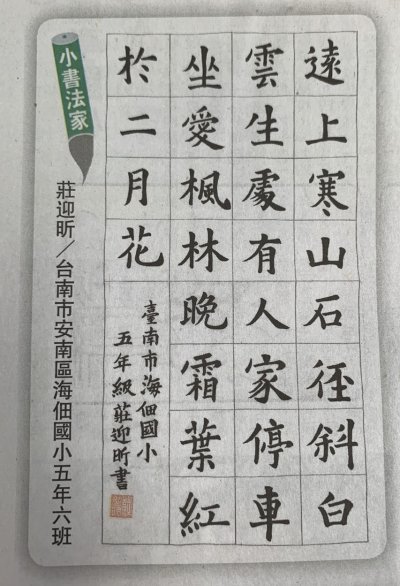 遠上寒山石徑斜白
雲生處有人家停車
坐愛楓林晚霜葉紅
於二月花
臺南市海佃國小
五年級莊迎昕書
小書法家
莊迎昕／台南市安南區海佃國小五年六班